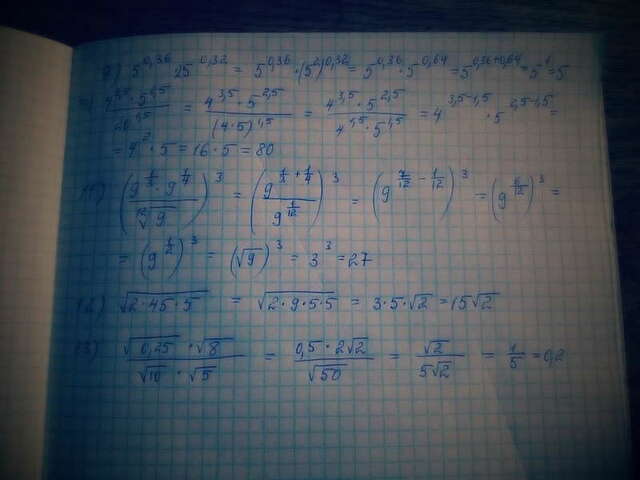 9) 5^0,36 · 25^0,32 = 5^0,36 · (5^2)^0,32 = 5^0,36 · 5^0,64 = 5^0,36+0,64 = 5^1 = 5
(4^3,5 · 5^2,5)/(20^1,5) = (4^3,5 · 5^2,5)/((4·5)^1,5) = (4^3,5 · 5^2,5)/(4^1,5 · 5^1,5) = 4^3,5-1,5 · 5^2,5-1,5 =
= 4^2 · 5 = 16 · 5 = 80
11) ((9^(1/3) · 9^(1/4))/(¹²√9))^3 = ((9^(1/3 + 1/4))/(9^(1/12)))^3 = (9^(7/12 - 1/12))^3 = (9^(6/12))^3 =
= (9^(1/2))^3 = (√9)^3 = 3^3 = 27
12) √(2·45·5) = √(2·9·5·5) = 3·5·√2 = 15√2
13) (√(0,25) · √8)/(√10 · √5) = (0,5 · 2√2)/(√50) = (√2)/(5√2) = 1/5 = 0,2